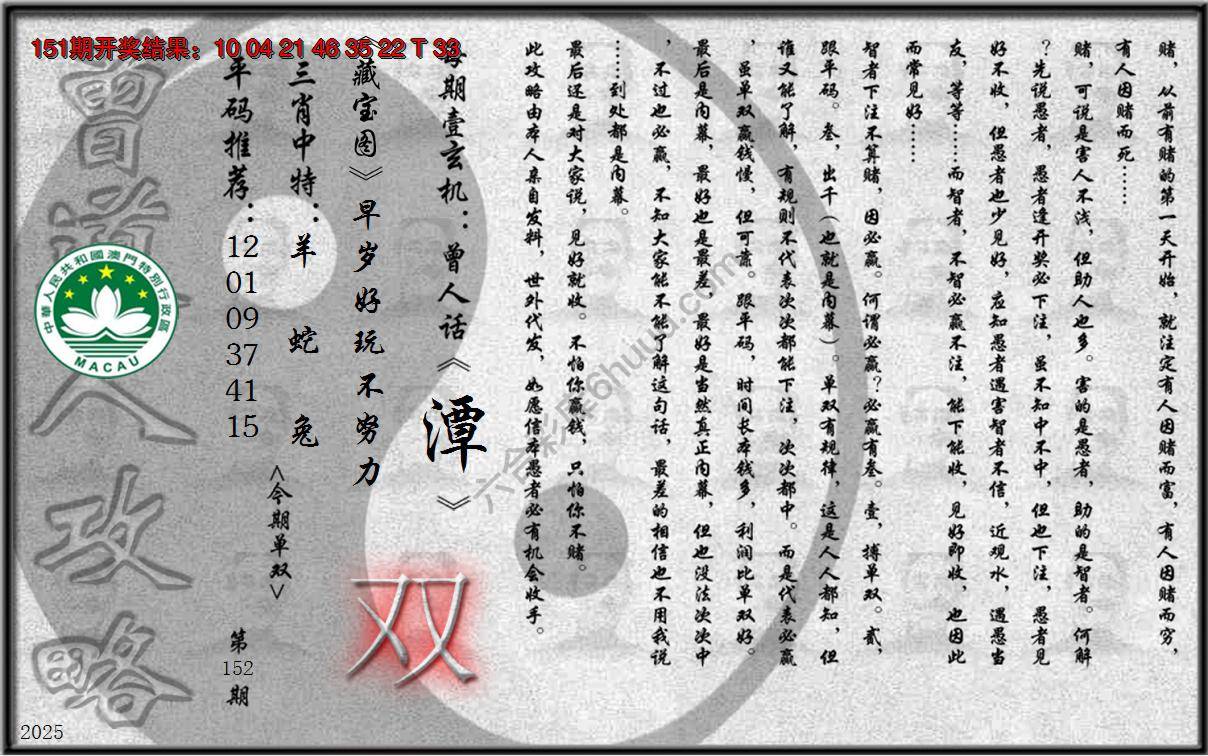 151期开奖结果：10 04 21 46 35 22 T 33
赌，从前有赌的第一天开始，就注定有人因赌而富，有人因赌而穷，
有人因赌而死……
赌，可说是害人不浅，但助人也多。害的是愚者，助的是智者。何解
？先说愚者，愚者逢开奖必下注，虽不知中不中，但也下注，愚者见
好不收，但愚者也少见好，应知愚者遇害智者不信，近观水，遇愚当
友，等等……而智者，不智必赢不注，能下能收，见好即收，也因此
而常见好……
智者下注不算赌，因必赢。何谓必赢？必赢有叁。壹，搏单双。贰，
跟平码。叁，出千（也就是内幕）。单双有规律，这是人人都知，但
谁又能了解，有规则不代表次次都能下注，次次都中。而是代表必赢
，虽单双赢钱慢，但可靠。跟平码，时间长本钱多，利润比单双好。
最后是内幕，最好也是最差，最好是当然真正内幕，但也没法次次中
，不过也必赢，不知大家能不能了解这句话，最差的相信也不用我说
……到处都是内幕。
最后还是对大家说，见好就收。不怕你赢钱，只怕你不赌。
此攻略由本人亲自发料，世外代发，如愿信本愚者必有机会收手。
每期壹玄机：曾人话《潭》
《藏宝图》早岁好玩不努力
双
三肖中特：羊 蛇 兔
<今期单双>
平码推荐：
12
01
09
37
41
15
第
152
期
曾道人攻略
中華人民共和國澳門特別行政區
MACAU
2025